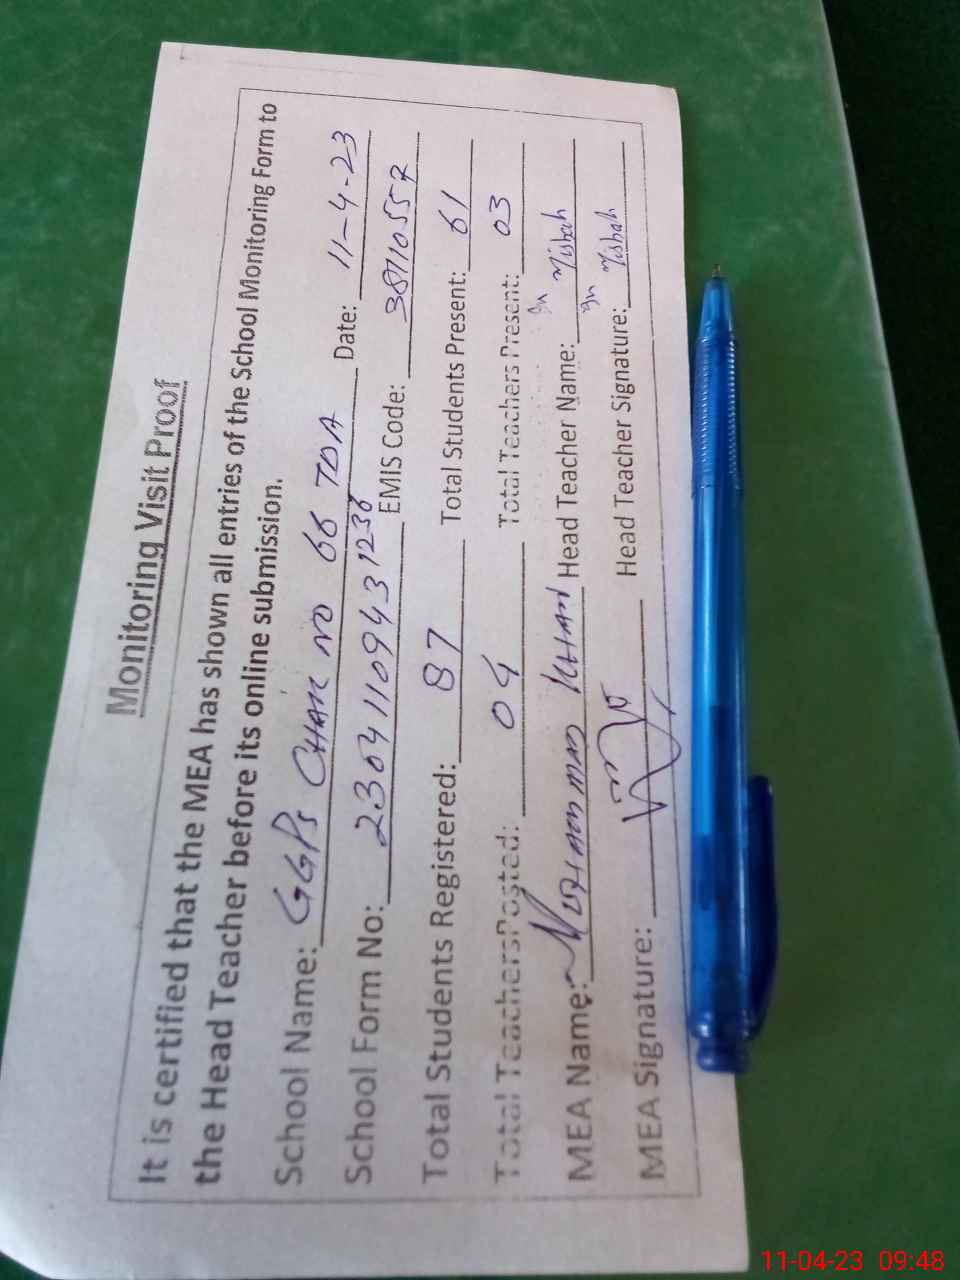 Monitoring Visit Proof
It is certified that the MEA has shown all entries of the School Monitoring Form to
the Head Teacher before its online submission.
School Name: GGPS CHAK NO 66 TDA Date: 11-4-23
School Form No: 23041109431236 EMIS Code: 38110557
Total Students Registered: 87 Total Students Present: 61
Total Teachers Posted: 04 Total Teachers Present: 03
MEA Name: MUHAMMAD KHAN Head Teacher Name: Misbah
MEA Signature: Head Teacher Signature: Misbah
11-04-23 09:48